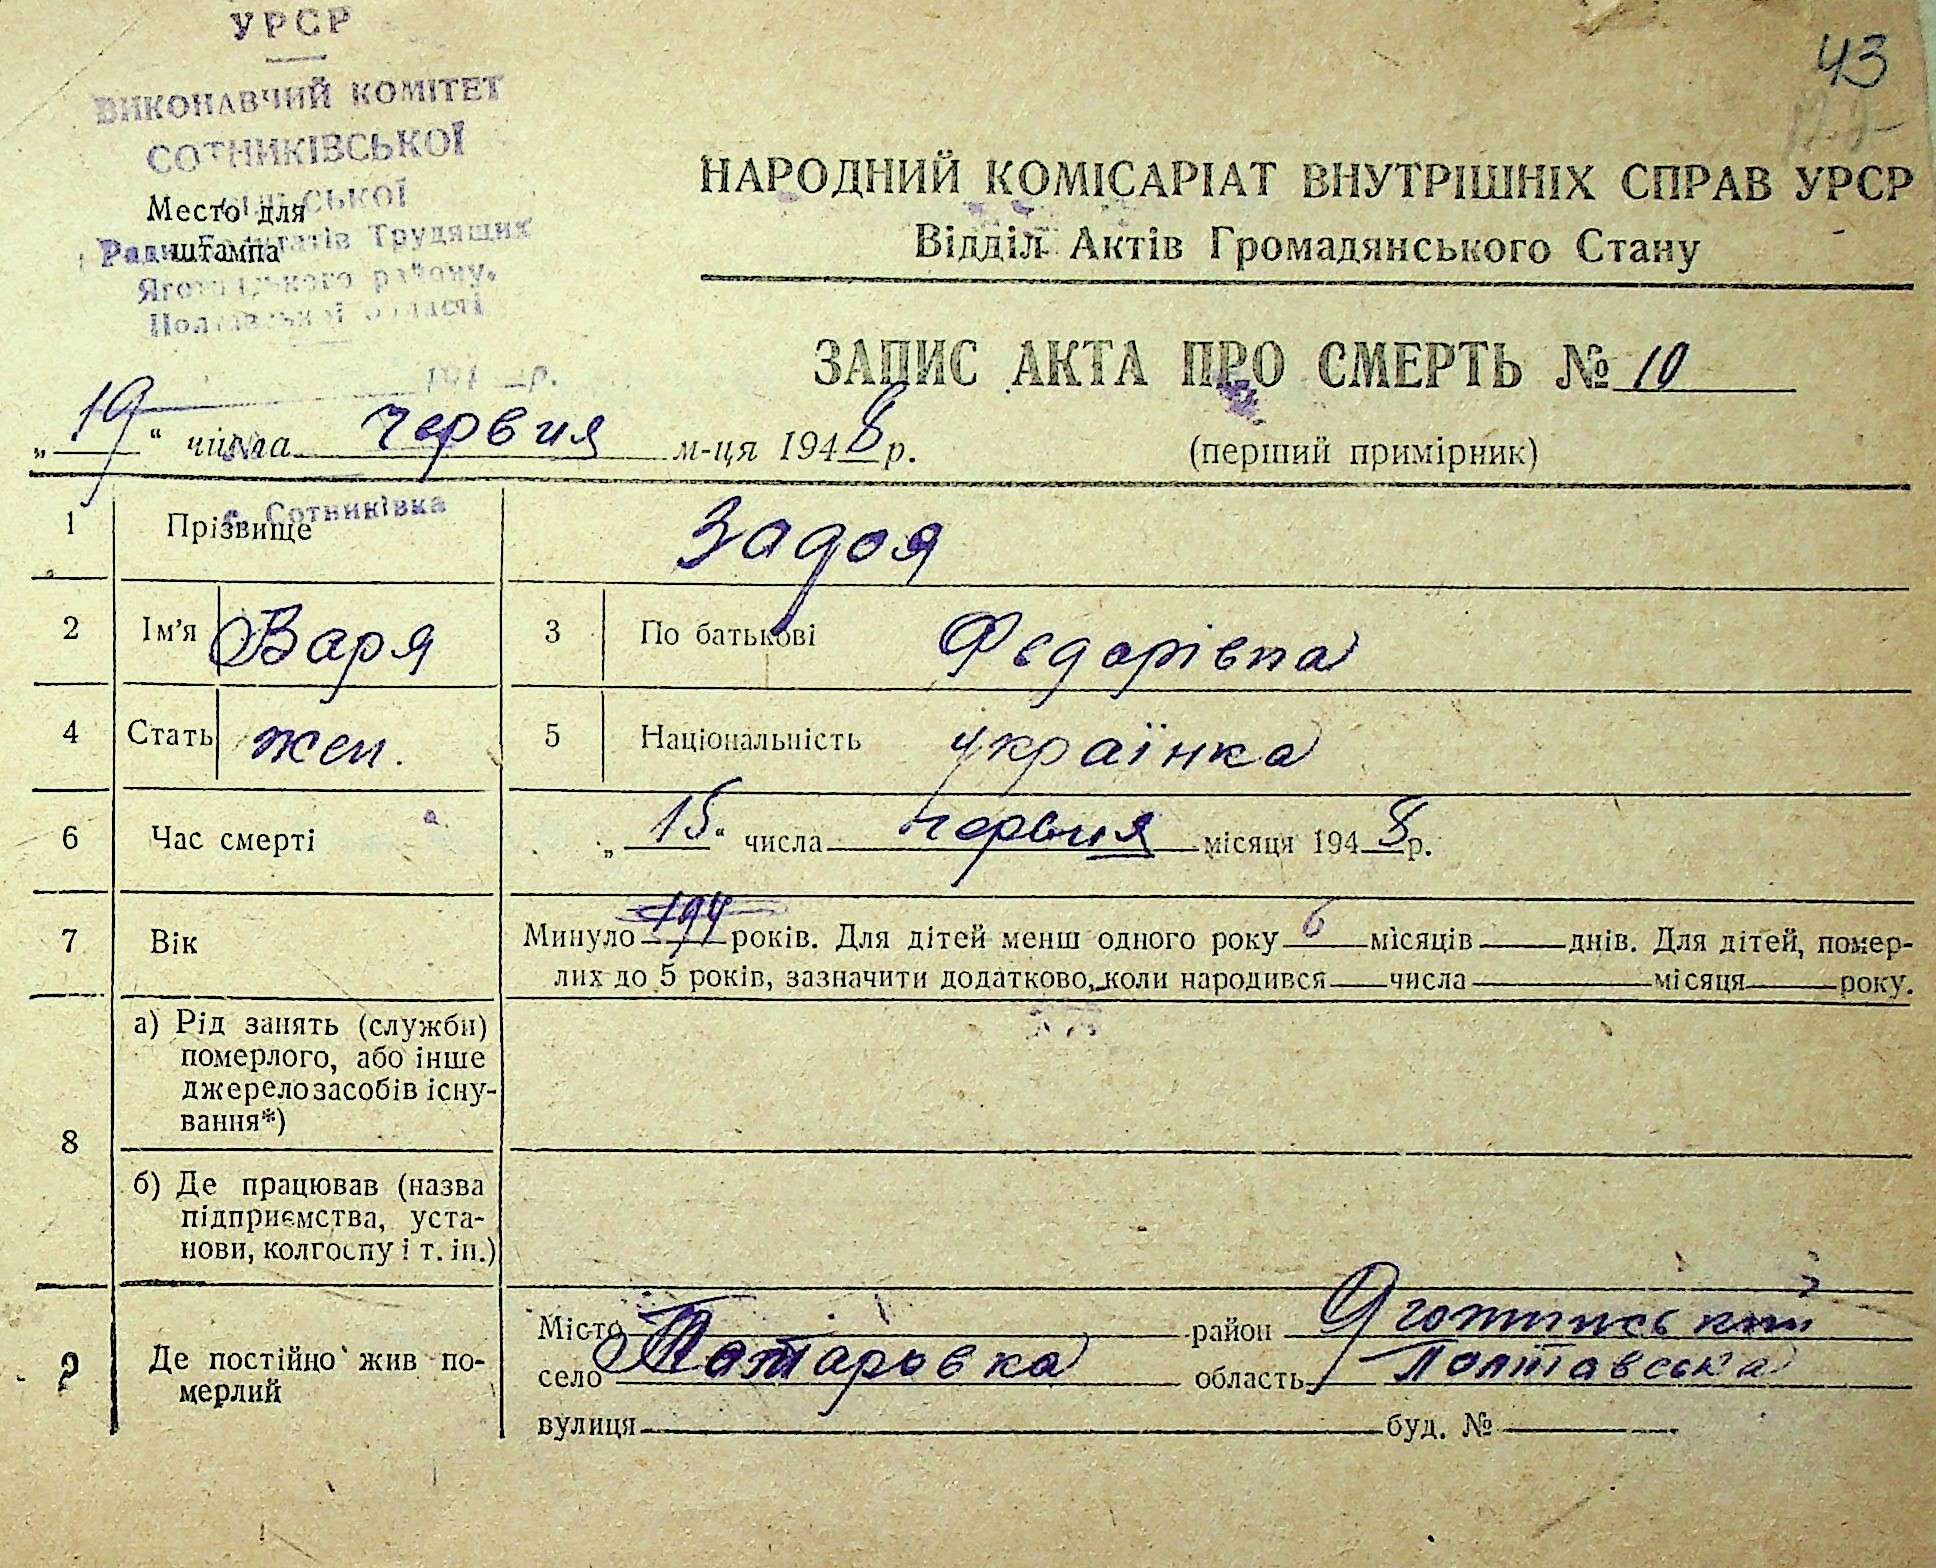 УРСР
ВИКОНАВЧИЙ КОМІТЕТ
СОТНИКІВСЬКОЇ
СІЛЬСЬКОЇ
Ради Депутатів Трудящих
Яготинського району,
Полтавської області
194 р.
с. Сотниківка
Место для
штампа
43
НАРОДНИЙ КОМІСАРІАТ ВНУТРІШНІХ СПРАВ УРСР
Відділ Актів Громадянського Стану
ЗАПИС АКТА ПРО СМЕРТЬ № 10
„19“ числа червня м-ця 1948 р.
(перший примірник)
1 Прізвище Задоя
2 Ім’я Варя 3 По батькові Федорівна
4 Стать жен. 5 Національність українка
6 Час смерті „15“ числа червня місяця 1948 р.
7 Вік Минуло 194 років. Для дітей менш одного року 6 місяців днів. Для дітей, помер-
лих до 5 років, зазначити додатково, коли народився числа місяця року.
8 а) Рід занять (служби)
померлого, або інше
джерело засобів існу-
вання*)
б) Де працював (назва
підприємства, уста-
нови, колгоспу і т. ін.)
9 Де постійно жив по-
мерлий
Місто район Яготинський
село Татаровка область Полтавська
вулиця буд. №